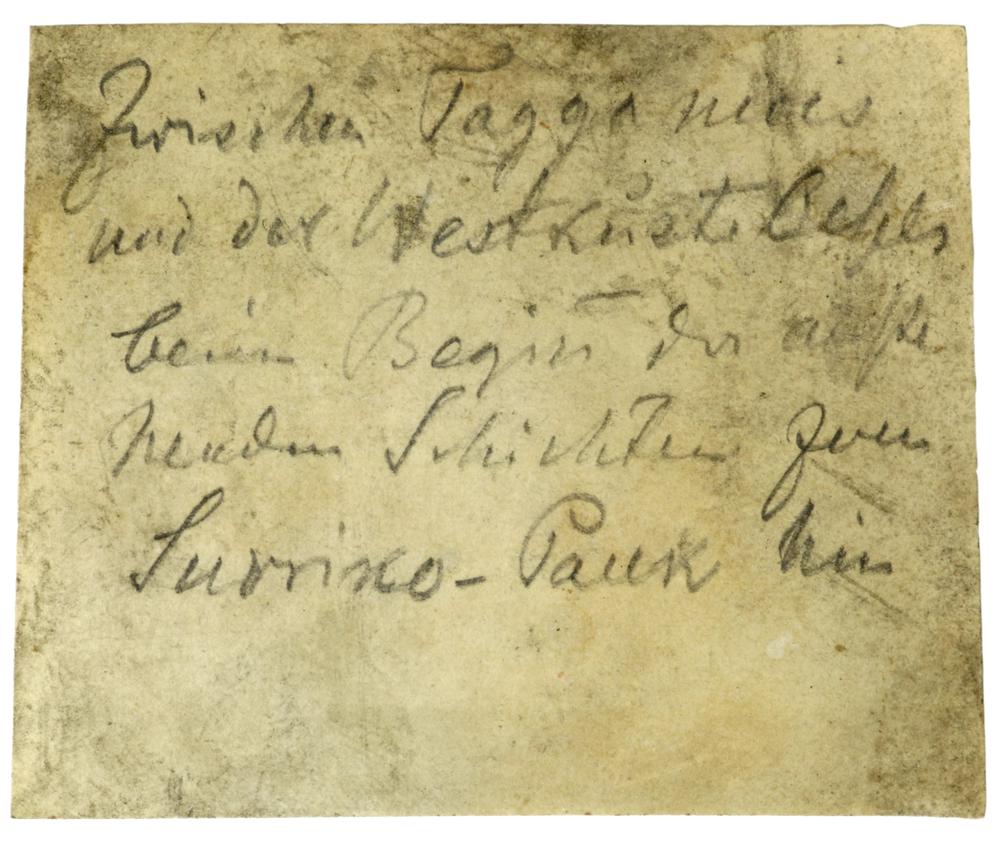 Zwischen Tagga
und der Westküste
beim Beginn der anste
henden Schichten zum
Surriko-Pauk hin